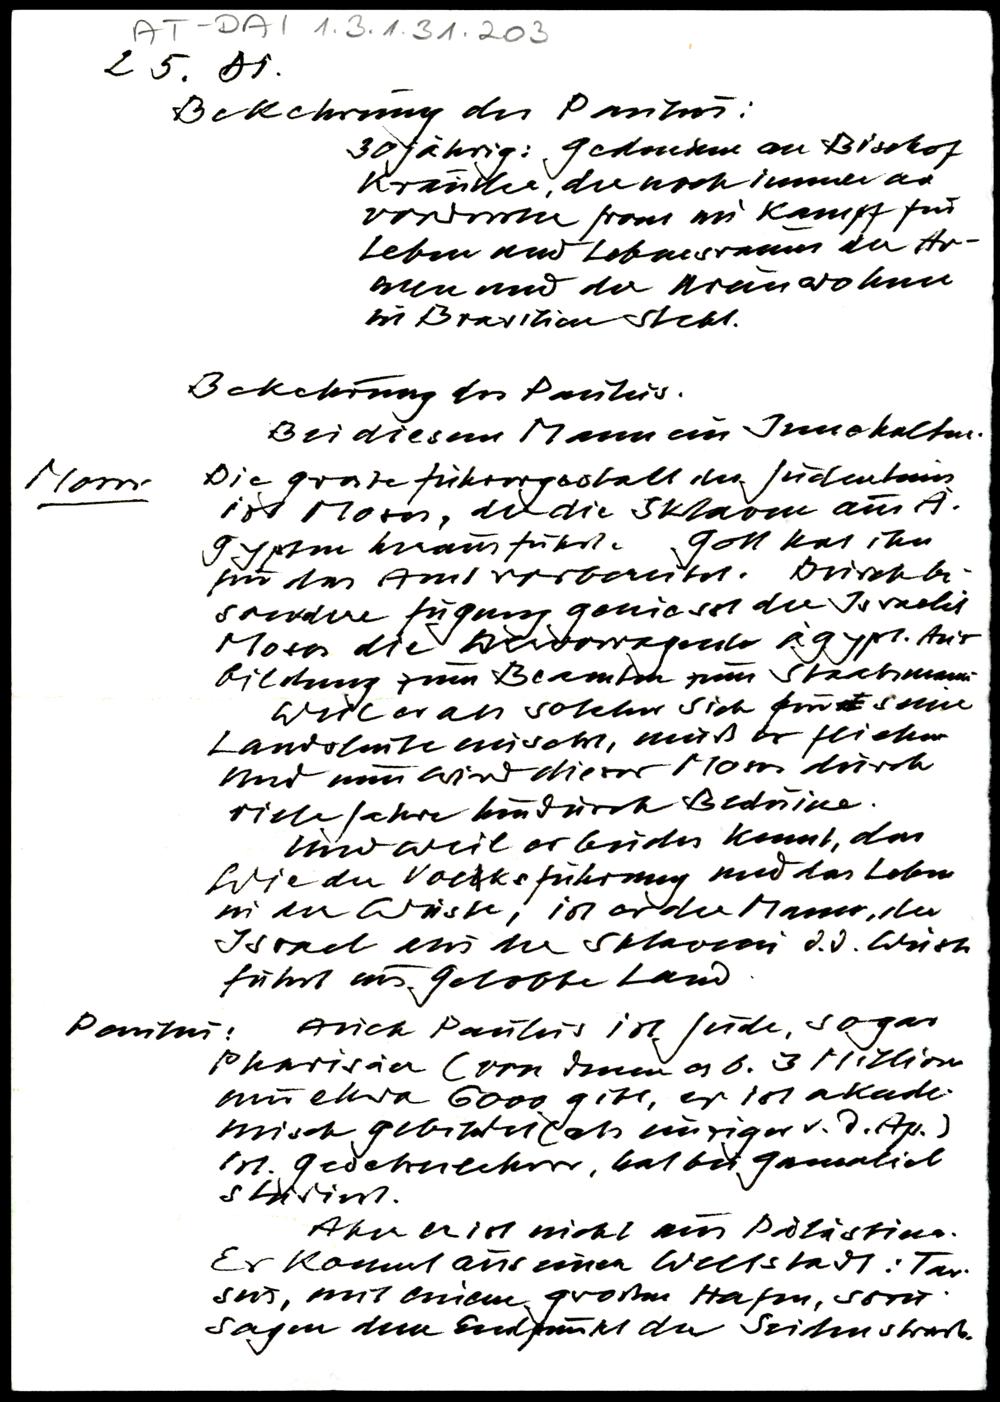 AT-DAI 1.3.1.31.203
25. 01.
Bekehrung des Paulus:
30jährig: Gedenken an Bischof
Kräutler, der noch immer an
vorderster front im Kampf für
Leben und Lebensraum der Ar-
men und der Ureinwohner
in Brasilien steht.
Bekehrung des Paulus.
Bei diesem Mann ein Innehalten.
Moses
Die grosse führergestalt des Judentums
ist Moses, der die Sklaven aus Ä-
gypten herausführt. Gott hat ihn
für das Amt vorbereitet. Durch be-
sondere fügung geniesst der Israelit
Moses die hervorragende ägypt. Aus
bildung zum Beamten zum Staatsmann
Weil er als solcher sich für seine
Landsleute einsetzt, muß er fliehen
Und nun wird dieser Moses durch
viele Jahre hindurch Beduine.
Und weil er beides kennt, das
Wie der Volksführung und das Leben
in der Wüste, ist er der Mann, der
Israel aus der Sklaverei d.d. Wüste
führt ins Gelobte Land
Paulus: Auch Paulus ist Jude, sogar
Pharisäer (von denen es b. 3 Million
nur etwa 6000 gibt, er ist akade-
misch gebildet (als einziger v. d. Ap.)
ist Gesetzeslehrer, hat bei Gamaliel
studiert.
Aber er ist nicht aus Palästina.
Er kommt aus einer Weltstadt: Tar-
sus, mit einem grossen Hafen, sozu-
sagen dem Endpunkt der Seidenstrasse.